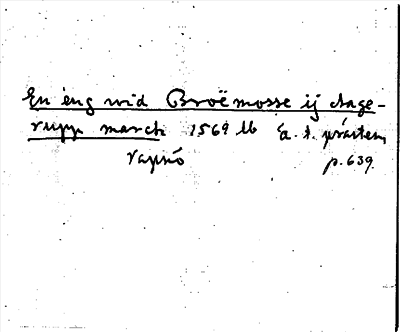 En eng wid Broëmosse ij Aage-
rupp march 1569 lb a. s. prästen,
Vapnö p. 639.